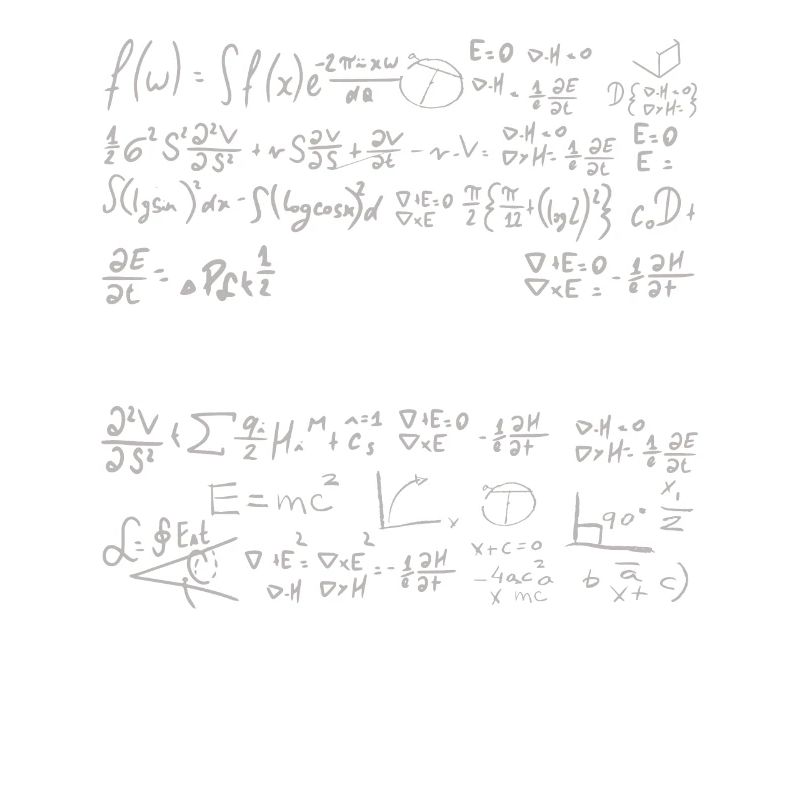 f(ω) = ∫f(x)e -2πixω / dΩ a E=0 ∇·H=0
∇·H = 1/c ∂E/∂t D{∇·H=0 ∇×H=}
1/2 σ² S² ∂²V/∂S² + r S ∂V/∂S + ∂V/∂t - r·V = ∇·H=0 ∇×H= 1/c ∂E/∂t E=0 E =
∫(lg sin )² dx - ∫(log cos x)² d ∇+E=0 ∇×E π/2 {π/12 + (log2)²} c₀D +
∂E/∂t = 1/2 ∇+E=0 ∇×E = - 1/c ∂H/∂t
∂²V/∂S² Σ qᵢ/2 Hᵢ M + n=1 Cₛ ∇+E=0 ∇×E - 1/c ∂H/∂t ∇·H=0 ∇×H= 1/c ∂E/∂t
E=mc² x a 90° x₁/2
ℒ=∮EΔt
∇+E²= ∇×E² = - 1/c ∂H/∂t x+c=0
∇·H ∇×H -4ac²a b a c)
x mc x+